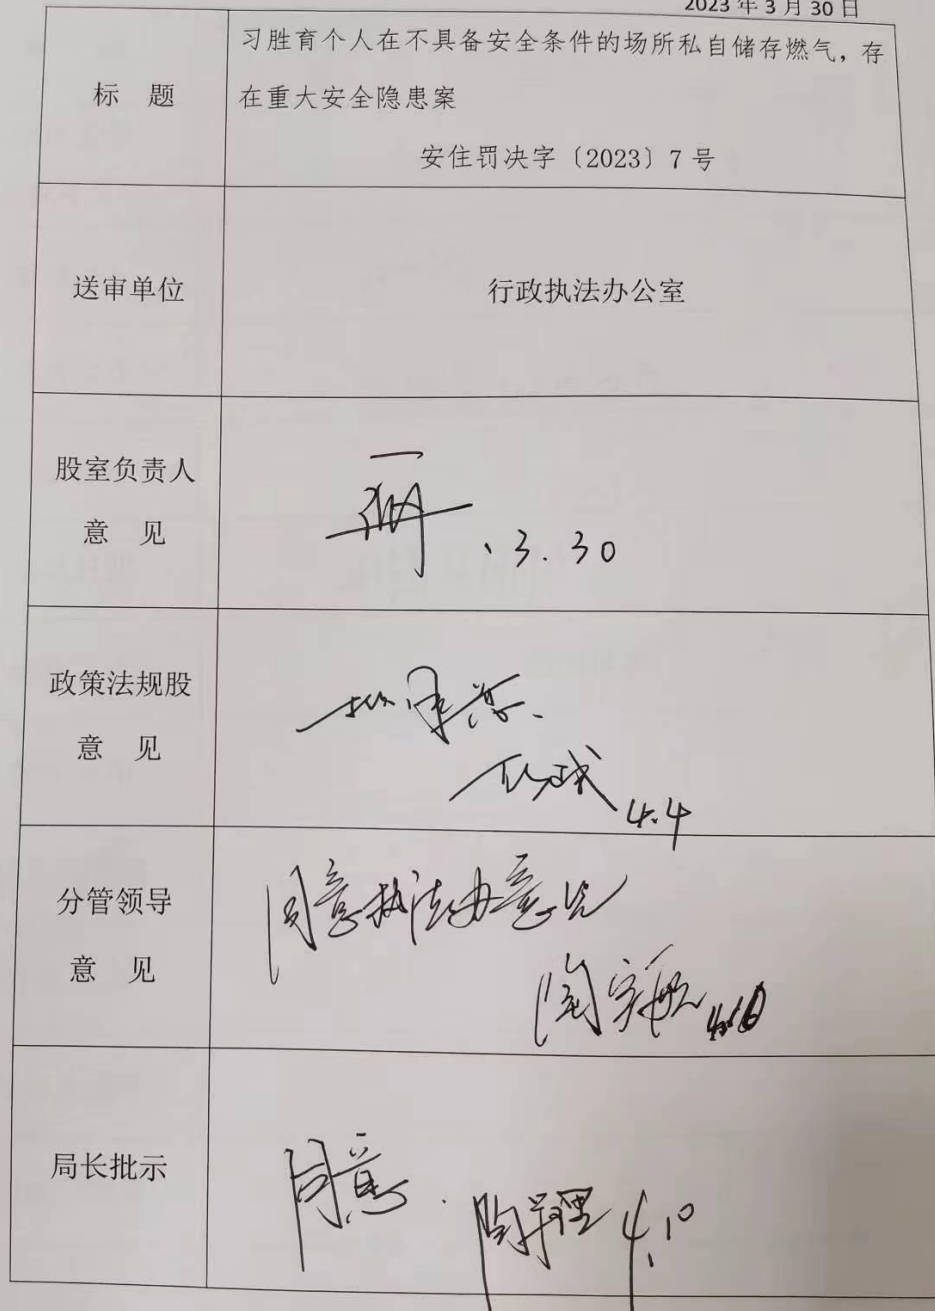 2023 年 3 月 30 日
标 题
习胜育个人在不具备安全条件的场所私自储存燃气，存
在重大安全隐患案
安住罚决字〔2023〕7 号
送审单位
行政执法办公室
股室负责人
意 见
3.30
政策法规股
意 见
4.4
分管领导
意 见
同意执法办意见
局长批示
同意.
4.10